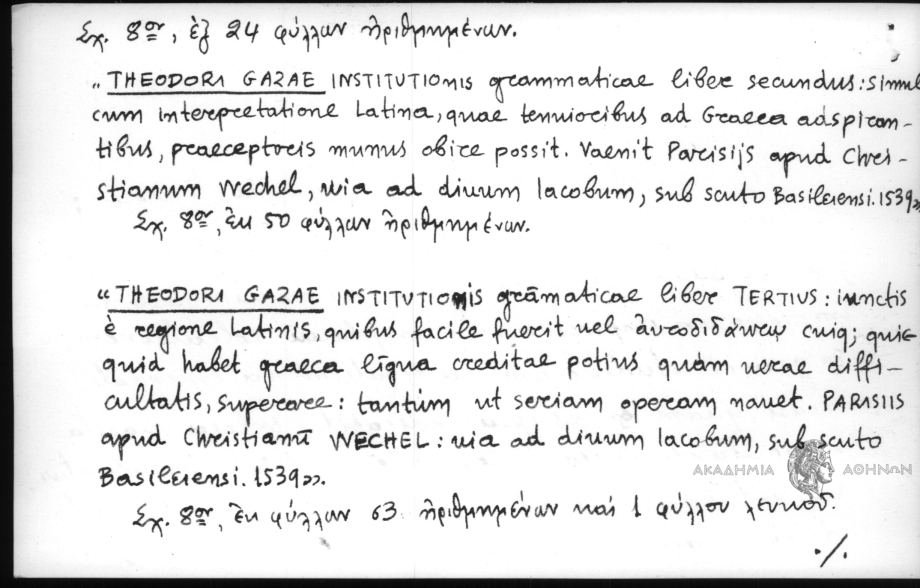 Σχ. 8ον, ἐξ 24 φύλλων ἠριθμημένων.
„THEODORI GAZAE INSTITUTIONIS grammaticae liber secundus: simul
cum interpretatione Latina, quae tenuioribus ad Graeca adspiran-
tibus, praeceptoris munus obire possit. Vaenit Parisijs apud Chri-
stianum Wechel, uia ad diuum Iacobum, sub scuto Basileiensi. 1539»
Σχ. 8ον, ἐκ 50 φύλλων ἠριθμημένων.
“THEODORI GAZAE INSTITUTIONIS grāmaticae liber TERTIUS: iunctis
è regione Latinis, quibus facile fuerit uel αὐτοδιδάκτῳ cuiq; quic
quid habet graeca līgua creditae potius quàm uerae diffi-
cultatis, superare: tantùm ut seriam operam nauet. PARISIIS
apud Christianū WECHEL: uia ad diuum Iacobum, sub scuto
Basileiensi. 1539».
Σχ. 8ον, ἐκ φύλλων 63 ἠριθμημένων καὶ 1 φύλλου λευκοῦ.
ΑΚΑΔΗΜΙΑ ΑΘΗΝΩΝ
./.